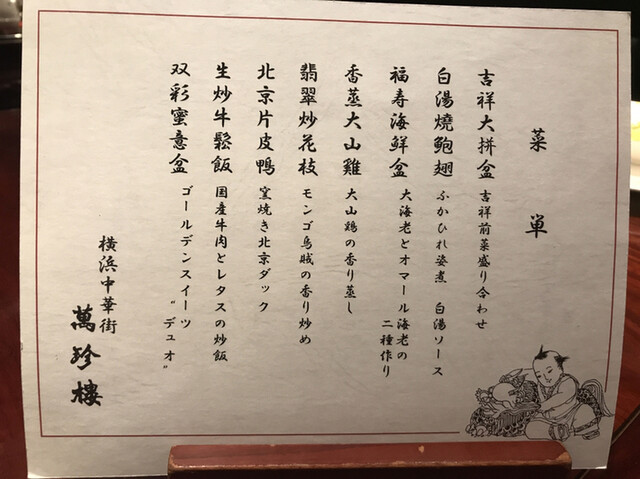 菜単
吉祥大拼盆 吉祥前菜盛り合わせ
白湯燒鮑翅 ふかひれ姿煮 白湯ソース
福寿海鮮盆 大海老とオマール海老の
二種作り
香蒸大山雞 大山鶏の香り蒸し
翡翠炒花枝 モンゴ烏賊の香り炒め
北京片皮鴨 窯焼き北京ダック
生炒牛鬆飯 国産牛肉とレタスの炒飯
双彩蜜意盆 ゴールデンスイーツ
“デュオ”
横浜中華街
萬珍樓